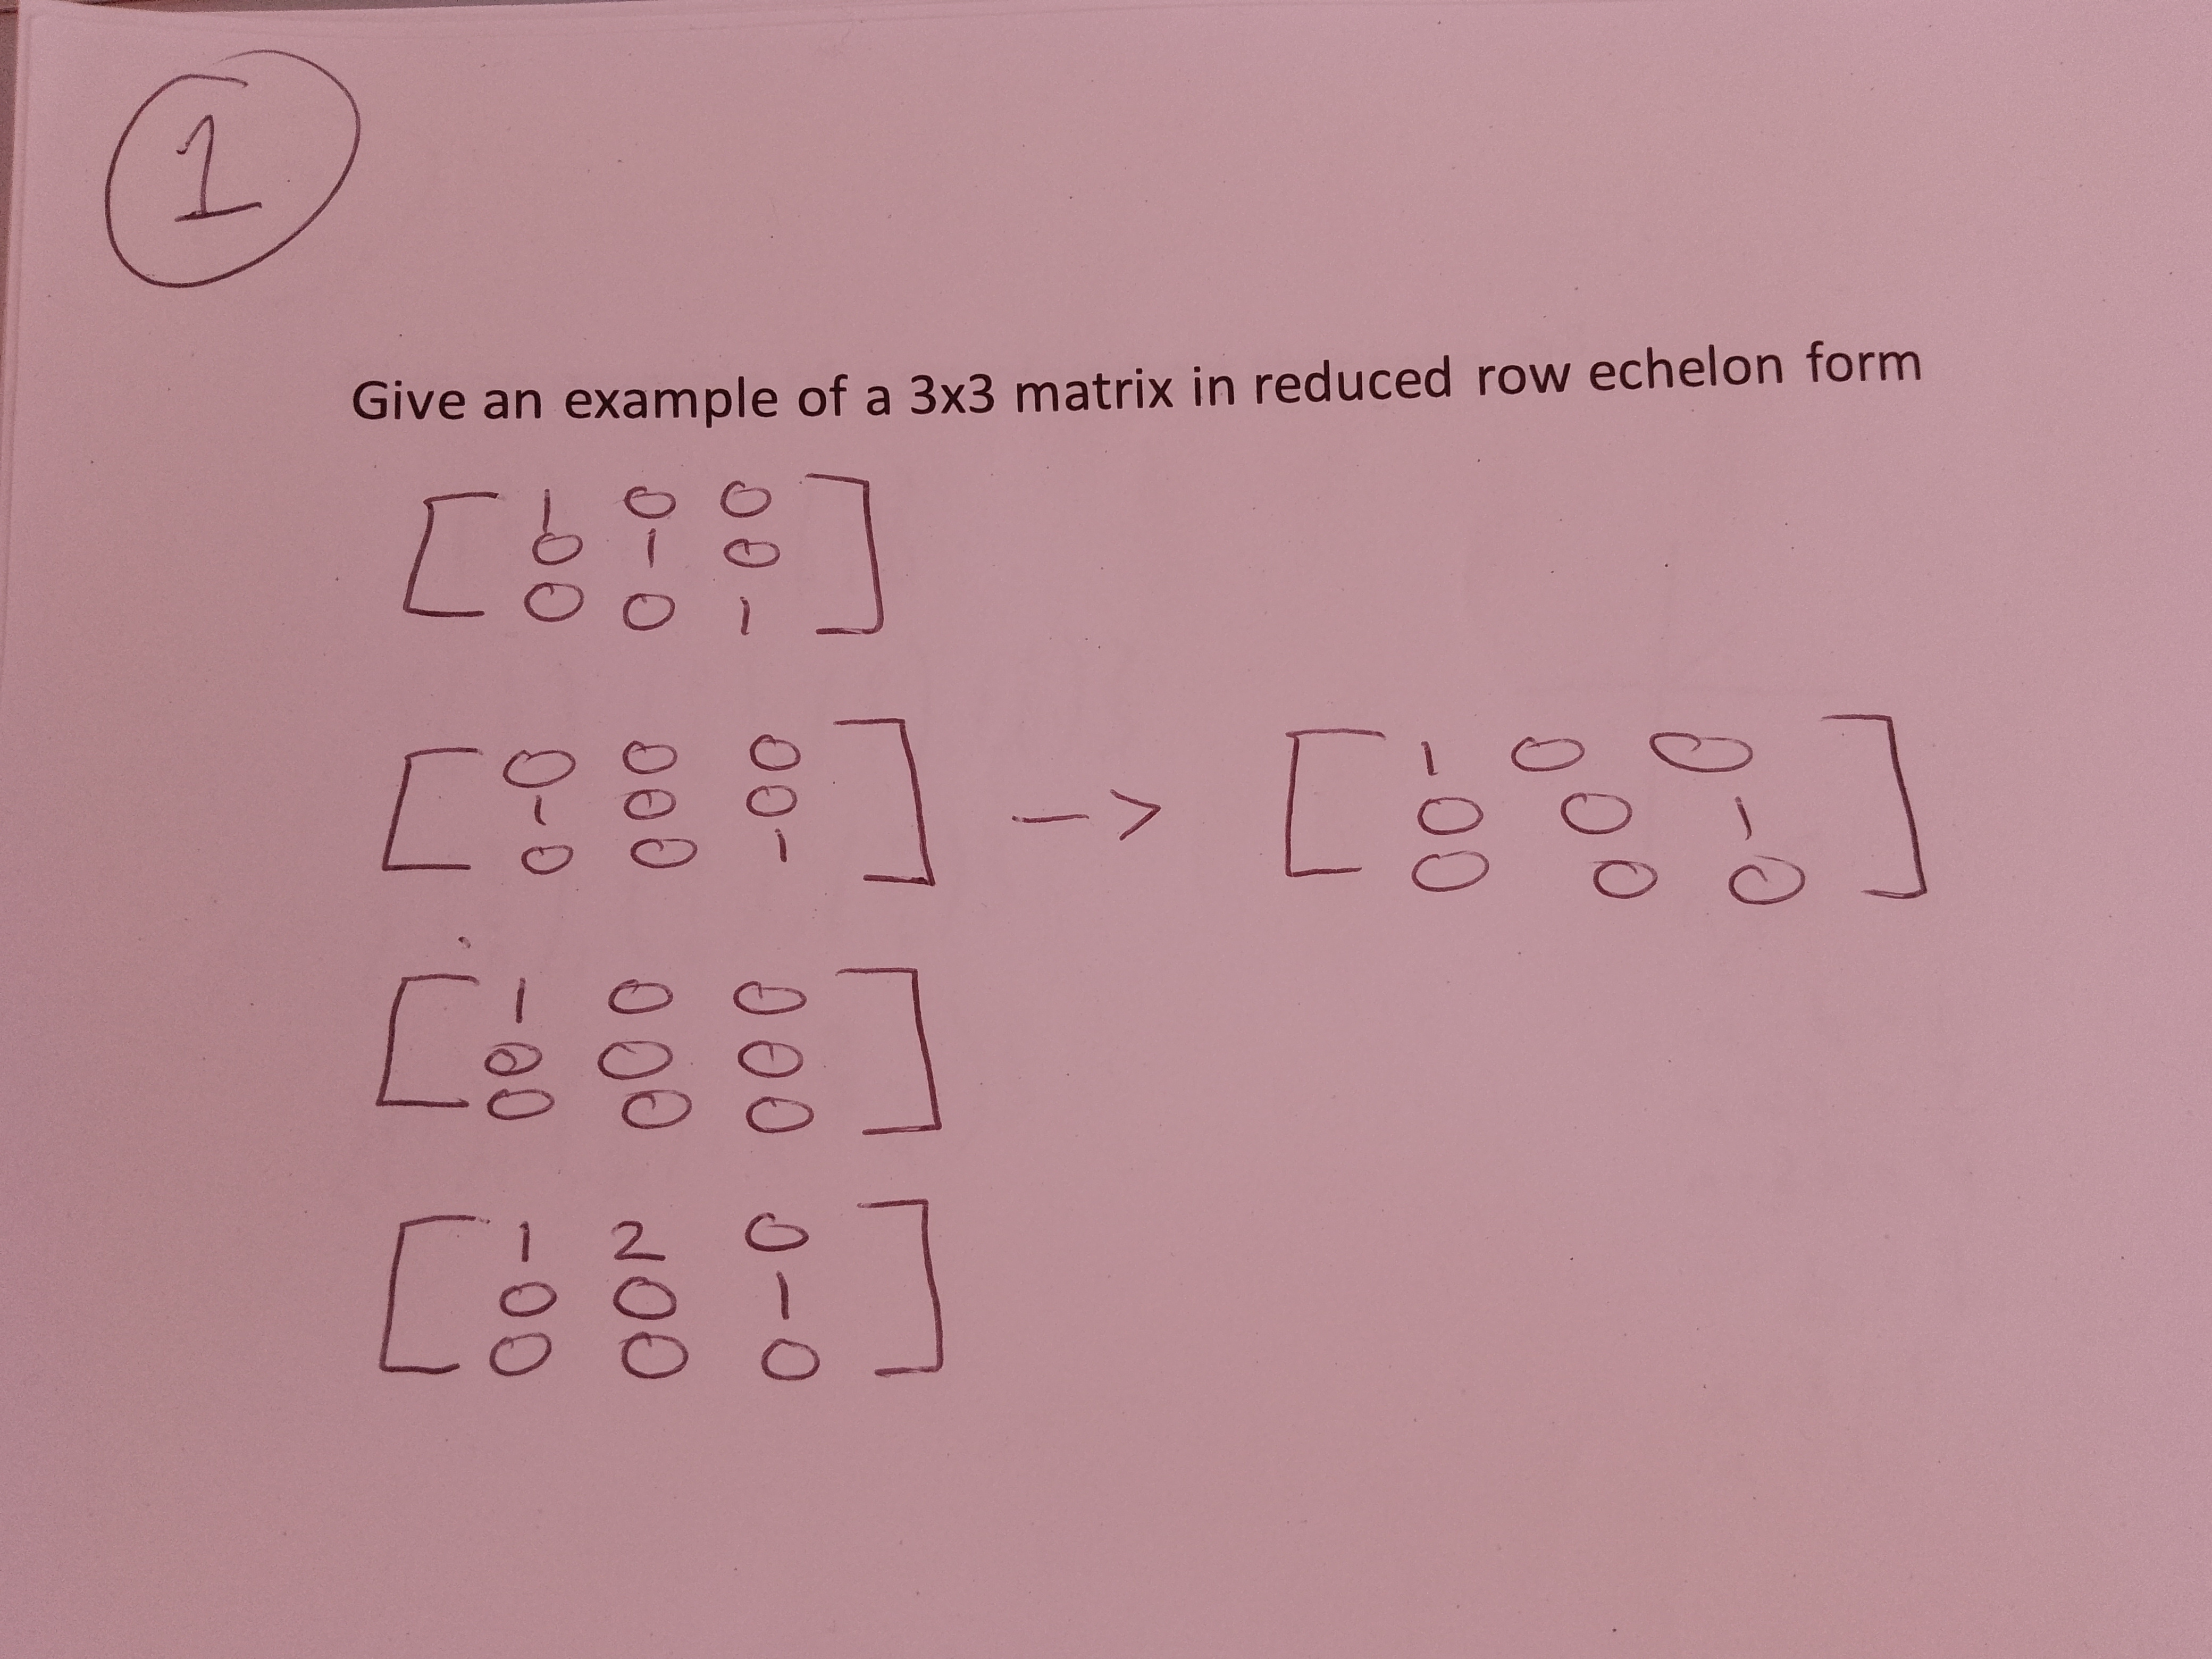 1
Give an example of a 3x3 matrix in reduced row echelon form
[ 1 0 0 ]
0 1 0
0 0 1
[ 0 0 0 ] -> [ 1 0 0 ]
1 0 0 0 0 1
0 0 1 0 0 0
[ 1 0 0 ]
0 0 0
0 0 0
[ 1 2 0 ]
0 0 1
0 0 0